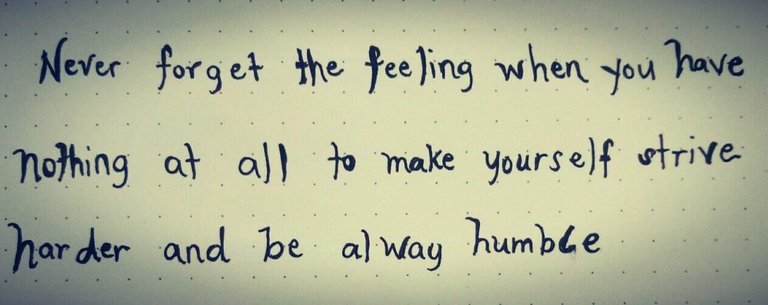 Never forget the feeling when you have
nothing at all to make yourself strive
harder and be alway humble